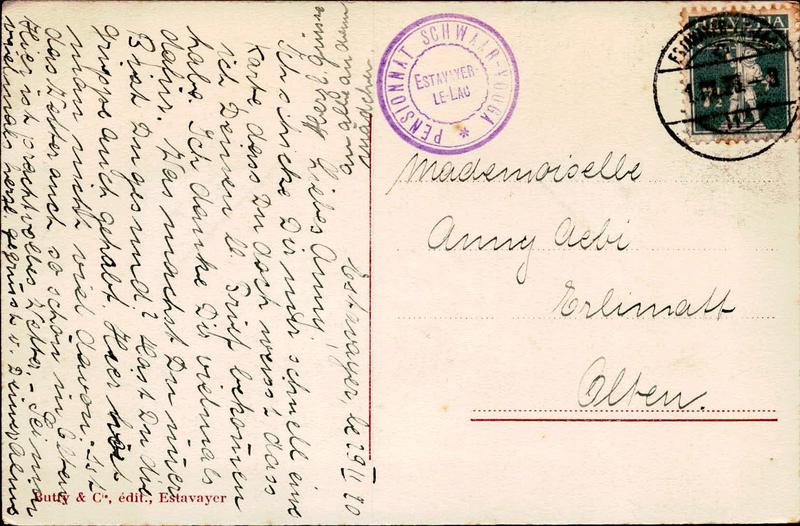 PENSIONNAT SCHWAAR-VOUGA *
ESTAVAYER-
LE-LAC
HELVETIA
7½
Mademoiselle
Anny Aebi
Erlimatt
Olten.
Estavayer le 29 II 20
Liebes Anny!
Ich schicke Dir nur schnell eine
Karte dass Du doch weisst, dass
ich Deinen lb. Brief bekommen
habe. Ich danke Dir vielmals
dafür. Was machst Du immer
Bist Du gesund? Hast Du die
Grippe auch gehabt. Hier hört
man nicht viel davon. Ist
das Wetter auch so schön in Olten
Hier ist prachtvolles Wetter. Sei nun
vielmals herzl. gegrüsst v. Deiner
Herzl. Grüsse
an alle andern
Mädchen
Butty & Cᵉ, édit., Estavayer